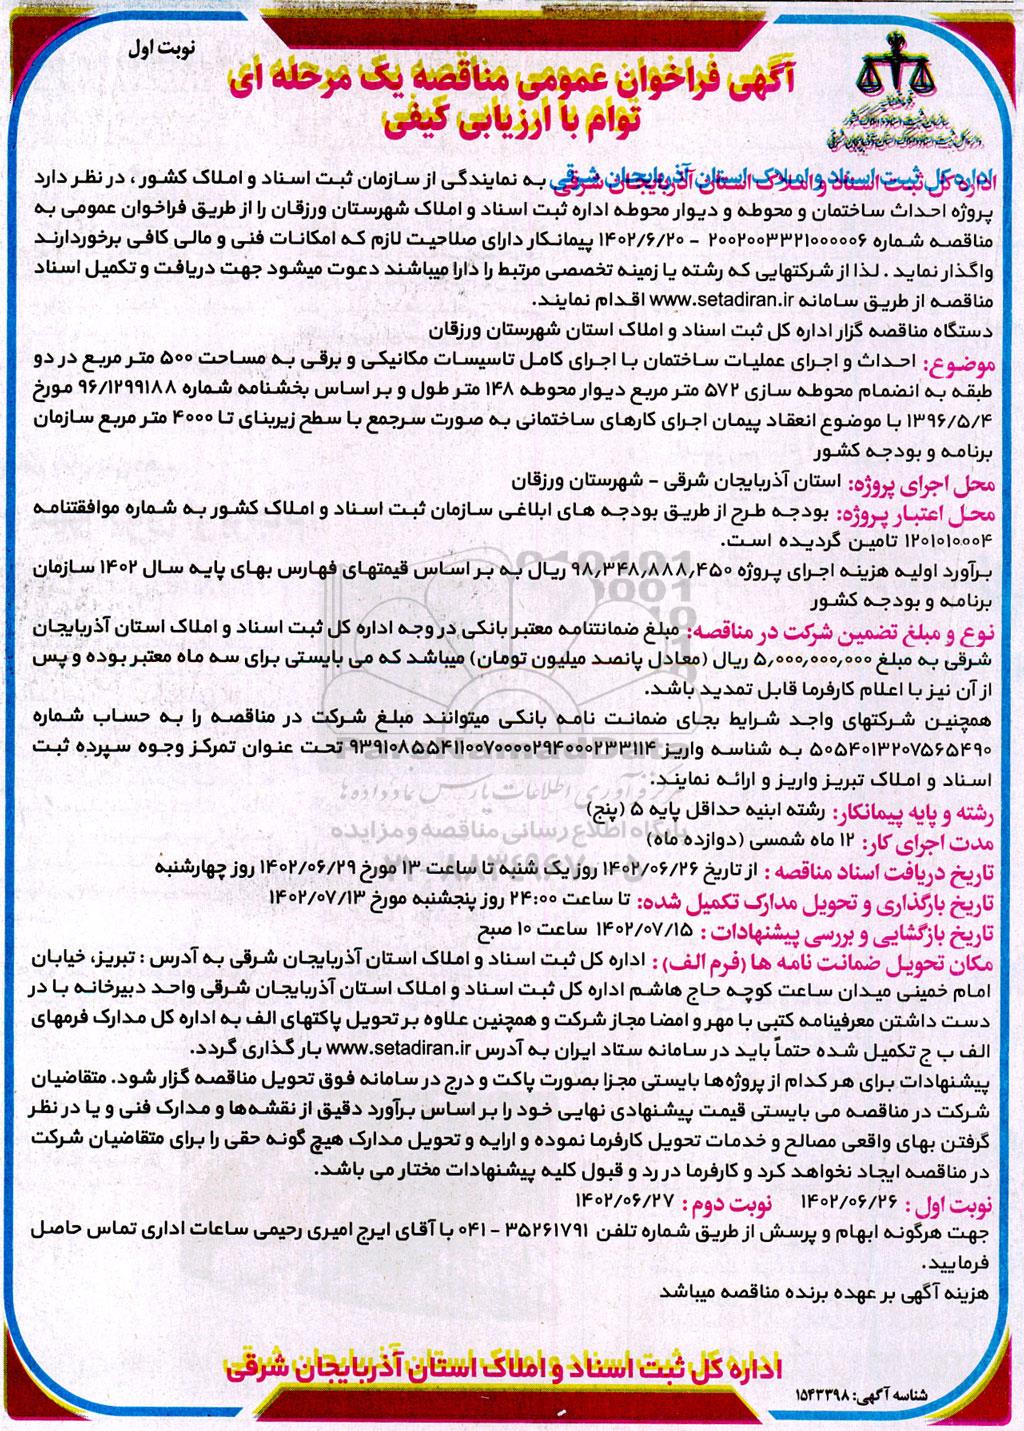 نوبت اول
آگهی فراخوان عمومی مناقصه یک مرحله ای
توام با ارزیابی کیفی
اداره کل ثبت اسناد و املاک استان آذربایجان شرقی به نمایندگی از سازمان ثبت اسناد و املاک کشور ، در نظر دارد
پروژه احداث ساختمان و محوطه و دیوار محوطه اداره ثبت اسناد و املاک شهرستان ورزقان را از طریق فراخوان عمومی به
مناقصه شماره ۲۰۰۲۰۰۳۳۲۱۰۰۰۰۰۶ - ۱۴۰۲/۶/۲۰ پیمانکار دارای صلاحیت لازم که امکانات فنی و مالی کافی برخوردارند
واگذار نماید . لذا از شرکتهایی که رشته یا زمینه تخصصی مرتبط را دارا میباشند دعوت میشود جهت دریافت و تکمیل اسناد
مناقصه از طریق سامانه www.setadiran.ir اقدام نمایند.
دستگاه مناقصه گزار اداره کل ثبت اسناد و املاک استان شهرستان ورزقان
موضوع: احداث و اجرای عملیات ساختمان با اجرای کامل تاسیسات مکانیکی و برقی به مساحت ۵۰۰ متر مربع در دو
طبقه به انضمام محوطه سازی ۵۷۲ متر مربع دیوار محوطه ۱۴۸ متر طول و بر اساس بخشنامه شماره ۹۶/۱۲۹۹۱۸۸ مورخ
۱۳۹۶/۵/۴ با موضوع انعقاد پیمان اجرای کارهای ساختمانی به صورت سرجمع با سطح زیربنای تا ۴۰۰۰ متر مربع سازمان
برنامه و بودجه کشور
محل اجرای پروژه: استان آذربایجان شرقی - شهرستان ورزقان
محل اعتبار پروژه: بودجه طرح از طریق بودجه های ابلاغی سازمان ثبت اسناد و املاک کشور به شماره موافقتنامه
۱۲۰۱۰۱۰۰۰۴ تامین گردیده است.
برآورد اولیه هزینه اجرای پروژه ۹۸,۳۴۸,۸۸۸,۴۵۰ ریال به بر اساس قیمتهای فهارس بهای پایه سال ۱۴۰۲ سازمان
برنامه و بودجه کشور
نوع و مبلغ تضمین شرکت در مناقصه: مبلغ ضمانتنامه معتبر بانکی در وجه اداره کل ثبت اسناد و املاک استان آذربایجان
شرقی به مبلغ ۵,۰۰۰,۰۰۰,۰۰۰ ریال (معادل پانصد میلیون تومان) میباشد که می بایستی برای سه ماه معتبر بوده و پس
از آن نیز با اعلام کارفرما قابل تمدید باشد.
همچنین شرکتهای واجد شرایط بجای ضمانت نامه بانکی میتوانند مبلغ شرکت در مناقصه را به حساب شماره
۵۰۵۴۰۱۳۲۰۷۵۶۵۴۹۰ به شناسه واریز ۹۳۹۱۰۸۵۵۴۱۱۰۰۷۰۰۰۰۰۲۹۴۰۰۰۲۳۳۱۱۴ تحت عنوان تمرکز وجوه سپرده ثبت
اسناد و املاک تبریز واریز و ارائه نمایند.
رشته و پایه پیمانکار: رشته ابنیه حداقل پایه ۵ (پنج)
مدت اجرای کار: ۱۲ ماه شمسی (دوازده ماه)
تاریخ دریافت اسناد مناقصه : از تاریخ ۱۴۰۲/۰۶/۲۶ روز یک شنبه تا ساعت ۱۳ مورخ ۱۴۰۲/۰۶/۲۹ روز چهارشنبه
تاریخ بارگذاری و تحویل مدارک تکمیل شده: تا ساعت ۲۴:۰۰ روز پنجشنبه مورخ ۱۴۰۲/۰۷/۱۳
تاریخ بازگشایی و بررسی پیشنهادات : ۱۴۰۲/۰۷/۱۵ ساعت ۱۰ صبح
مکان تحویل ضمانت نامه ها (فرم الف) : اداره کل ثبت اسناد و املاک استان آذربایجان شرقی به آدرس : تبریز، خیابان
امام خمینی میدان ساعت کوچه حاج هاشم اداره کل ثبت اسناد و املاک استان آذربایجان شرقی واحد دبیرخانه با در
دست داشتن معرفینامه کتبی با مهر و امضا مجاز شرکت و همچنین علاوه بر تحویل پاکتهای الف به اداره کل مدارک فرمهای
الف ب ج تکمیل شده حتماً باید در سامانه ستاد ایران به آدرس www.setadiran.ir بار گذاری گردد.
پیشنهادات برای هر کدام از پروژه‌ها بایستی مجزا بصورت پاکت و درج در سامانه فوق تحویل مناقصه گزار شود. متقاضیان
شرکت در مناقصه می بایستی قیمت پیشنهادی نهایی خود را بر اساس برآورد دقیق از نقشه‌ها و مدارک فنی و یا در نظر
گرفتن بهای واقعی مصالح و خدمات تحویل کارفرما نموده و ارایه و تحویل مدارک هیچ گونه حقی را برای متقاضیان شرکت
در مناقصه ایجاد نخواهد کرد و کارفرما در رد و قبول کلیه پیشنهادات مختار می باشد.
نوبت اول : ۱۴۰۲/۰۶/۲۶ نوبت دوم : ۱۴۰۲/۰۶/۲۷
جهت هرگونه ابهام و پرسش از طریق شماره تلفن ۳۵۲۶۱۷۹۱ - ۰۴۱ با آقای ایرج امیری رحیمی ساعات اداری تماس حاصل
فرمایید.
هزینه آگهی بر عهده برنده مناقصه میباشد
اداره کل ثبت اسناد و املاک استان آذربایجان شرقی
شناسه آگهی: ۱۵۴۳۳۹۸